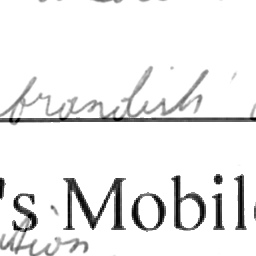 brandish
's Mobile
ution